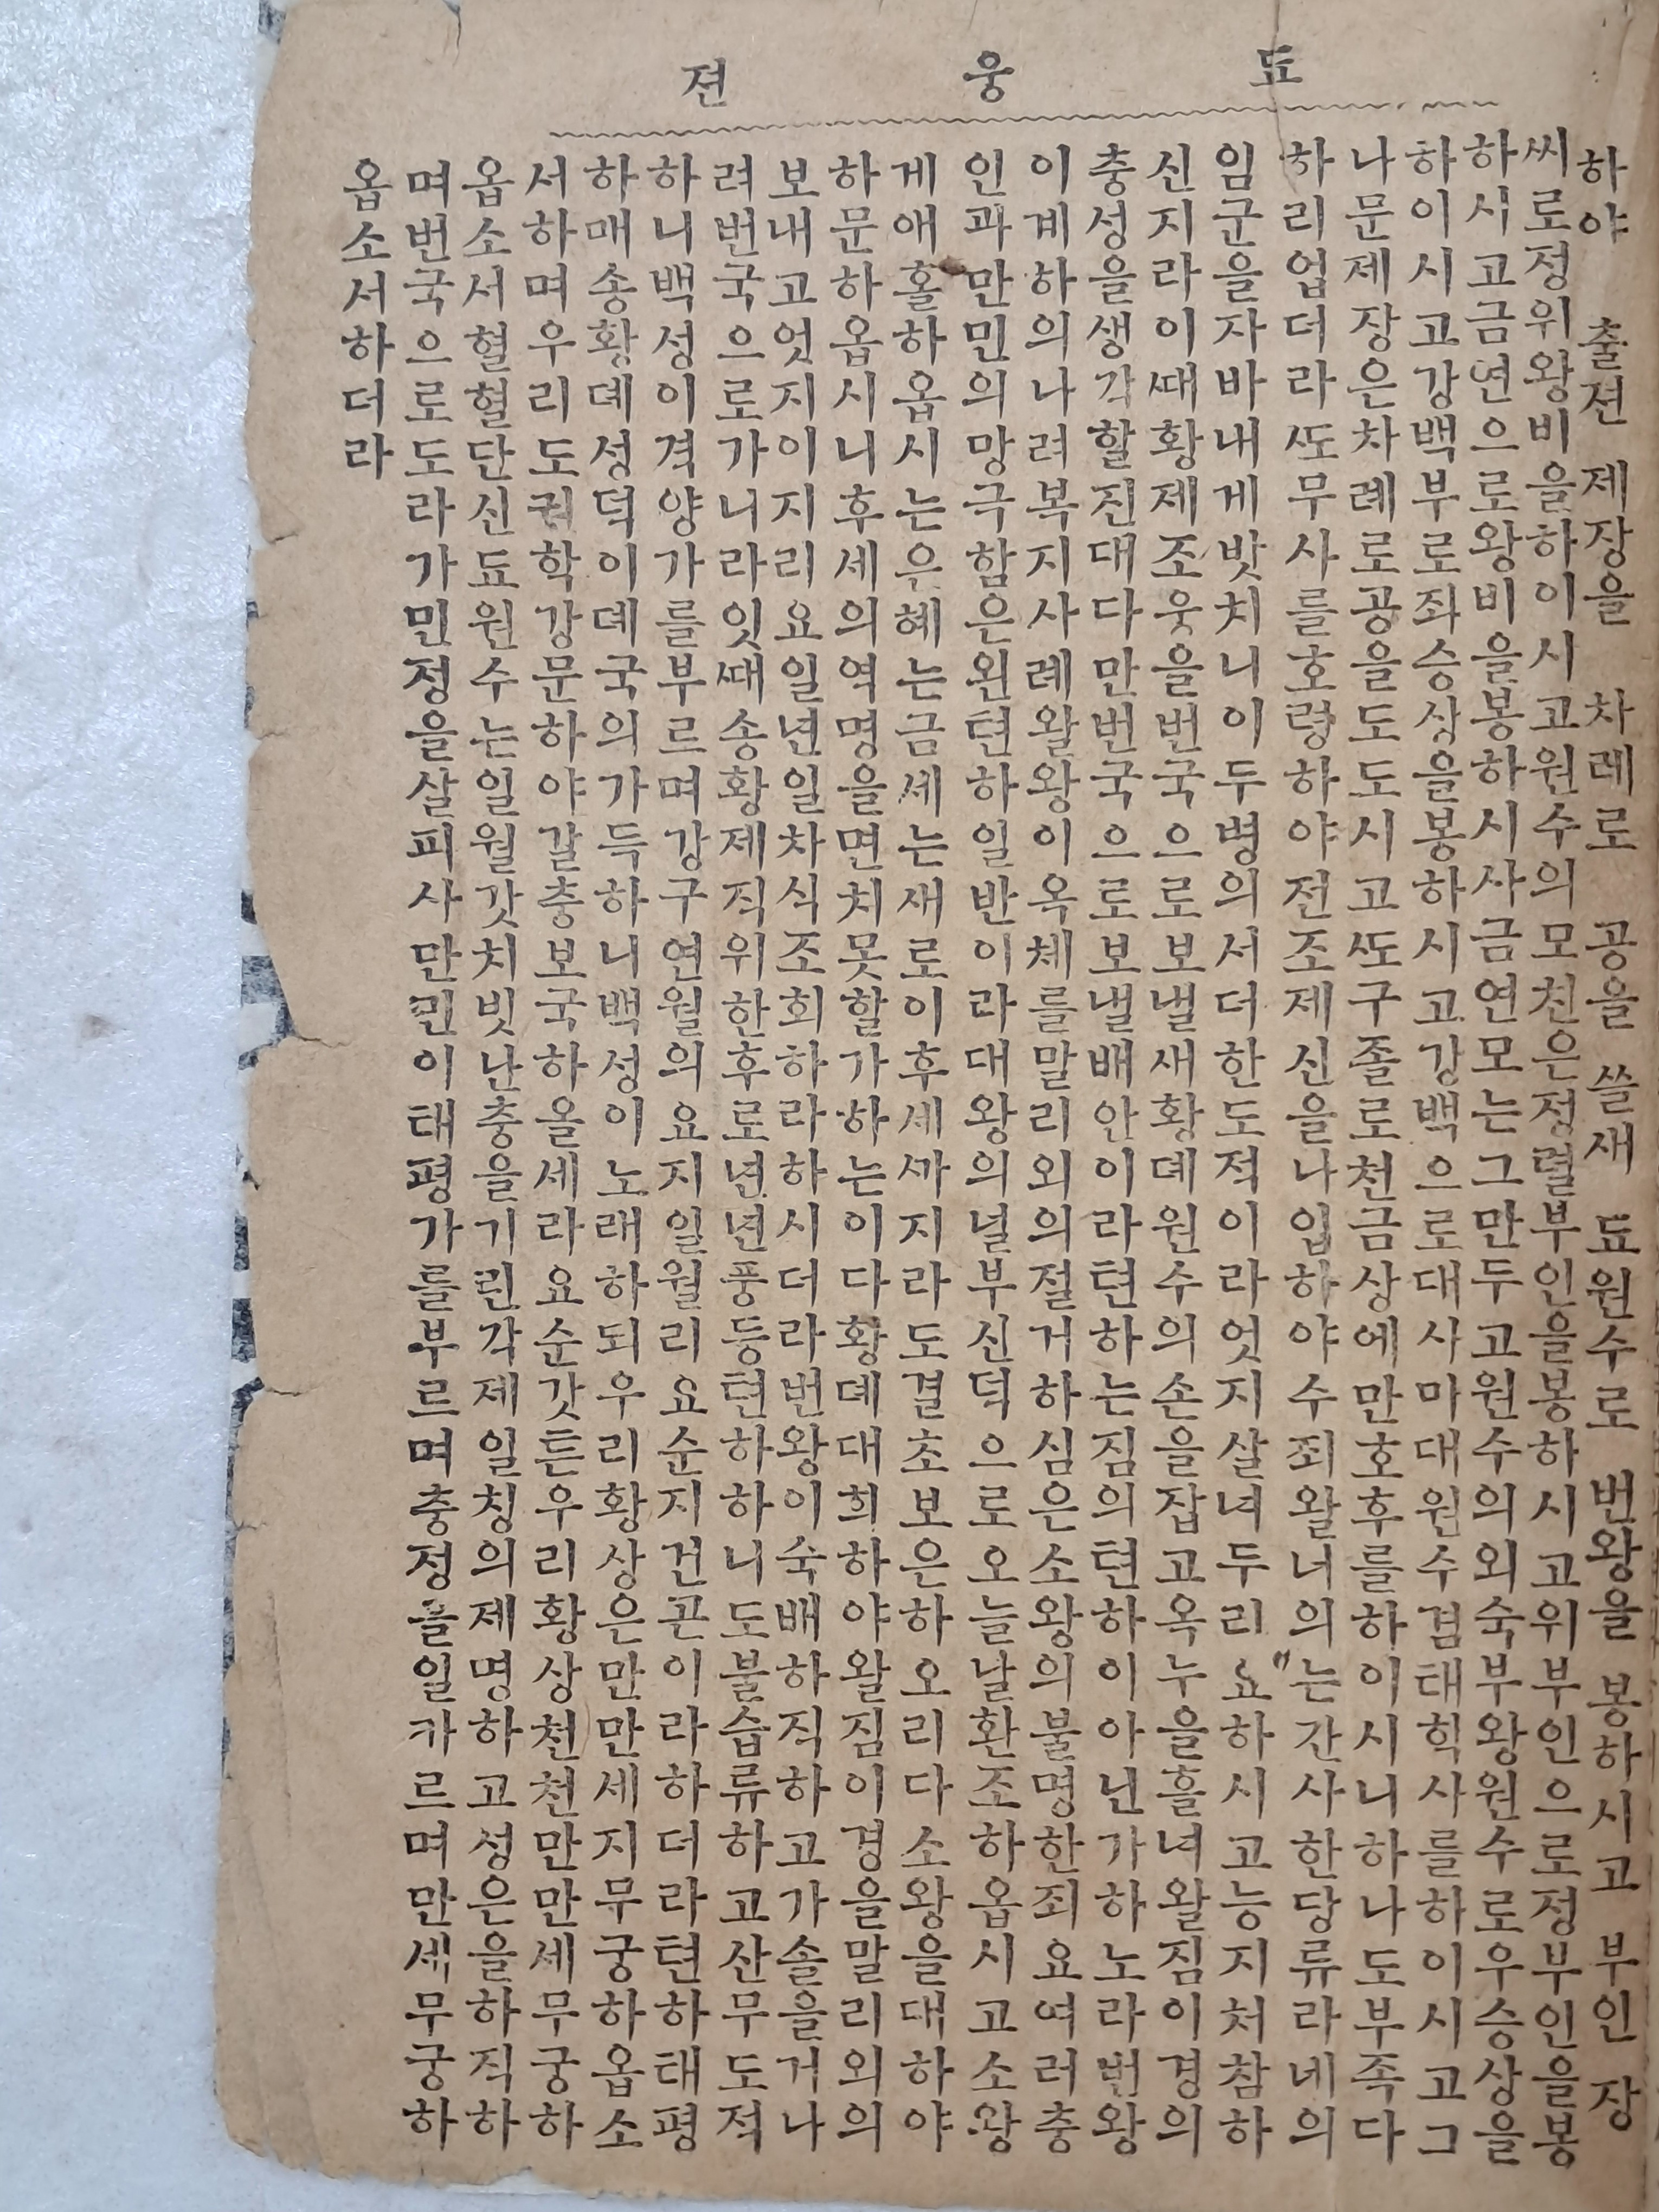 됴웅젼
하야 출젼 제장을 차례로 공을 쓸새 됴원수로 번왕을 봉하시고 부인 장
씨로정위왕비을하이시고원수의모친은정렬부인을봉하시고위부인으로정부인을봉
하시고금연으로왕비을봉하시사금연모는그만두고원수의외숙부왕원수로우승상을
하이시고강백부로좌승상을봉하시고강백으로대사마대원수겸태학사를하이시고그
나문제장은차례로공을도도시고ᄯᅩ구졸로천금상에만호후를하이시니하나도부족다
하리업더라ᄯᅩ무사를호령하야전조제신을나입하야수죄왈너의는간사한당류라네의
임군을자바내게밧치니이두병의서더한도적이라엇지살녀두리요〃하시고능지처참하
신지라이ᄯᅢ황제조웃을번국으로보낼새황뎨원수의손을잡고옥누을흘녀왈짐이경의
충성을생각할진대다만번국으로보낼배안이라텬하는짐의텬하이아닌가하노라번왕
이계하의나려복지사례왈왕이옥체를말리외의절거하심은소왕의불명한죄요여러충
인과만민의망극함은왼텬하일반이라대왕의널부신덕으로오늘날환조하옵시고소왕
게애홀하옵시는은혜는금세는새로이후세ᄭᅡ지라도결초보은하오리다소왕을대하야
하문하옵시니후세의역명을면치못할가하는이다황뎨대희하야왈짐이경을말리외의
보내고엇지이지리요일년일차식조회하라하시더라번왕이숙배하직하고가솔을거나
려번국으로가니라잇ᄯᅢ송황제직위한후로년년풍등텬하하니도불습류하고산무도적
하니백성이격양가를부르며강구연월의요지일월리요순지건곤이라하더라텬하태평
하매송황뎨성덕이뎨국의가득하니백성이노래하되우리황상은만만세지무궁하옵소
서하며우리도권학강문하야갈충보국하올세라요순갓튼우리황상천천만만세무궁하
옵소서혈혈단신됴원수는일월갓치빗난충을기린각제일칭의제명하고성은을하직하
며번국으로도라가민정을살피사만민이태평가를부르며충정을일카르며만세무궁하
옵소서하더라